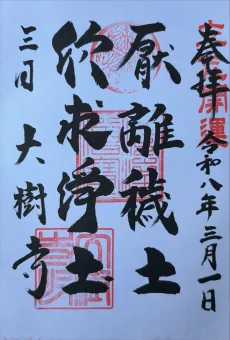 奉拝 令和八年三月一日
厭離穢土
欣求浄土
三河 大樹寺
開運